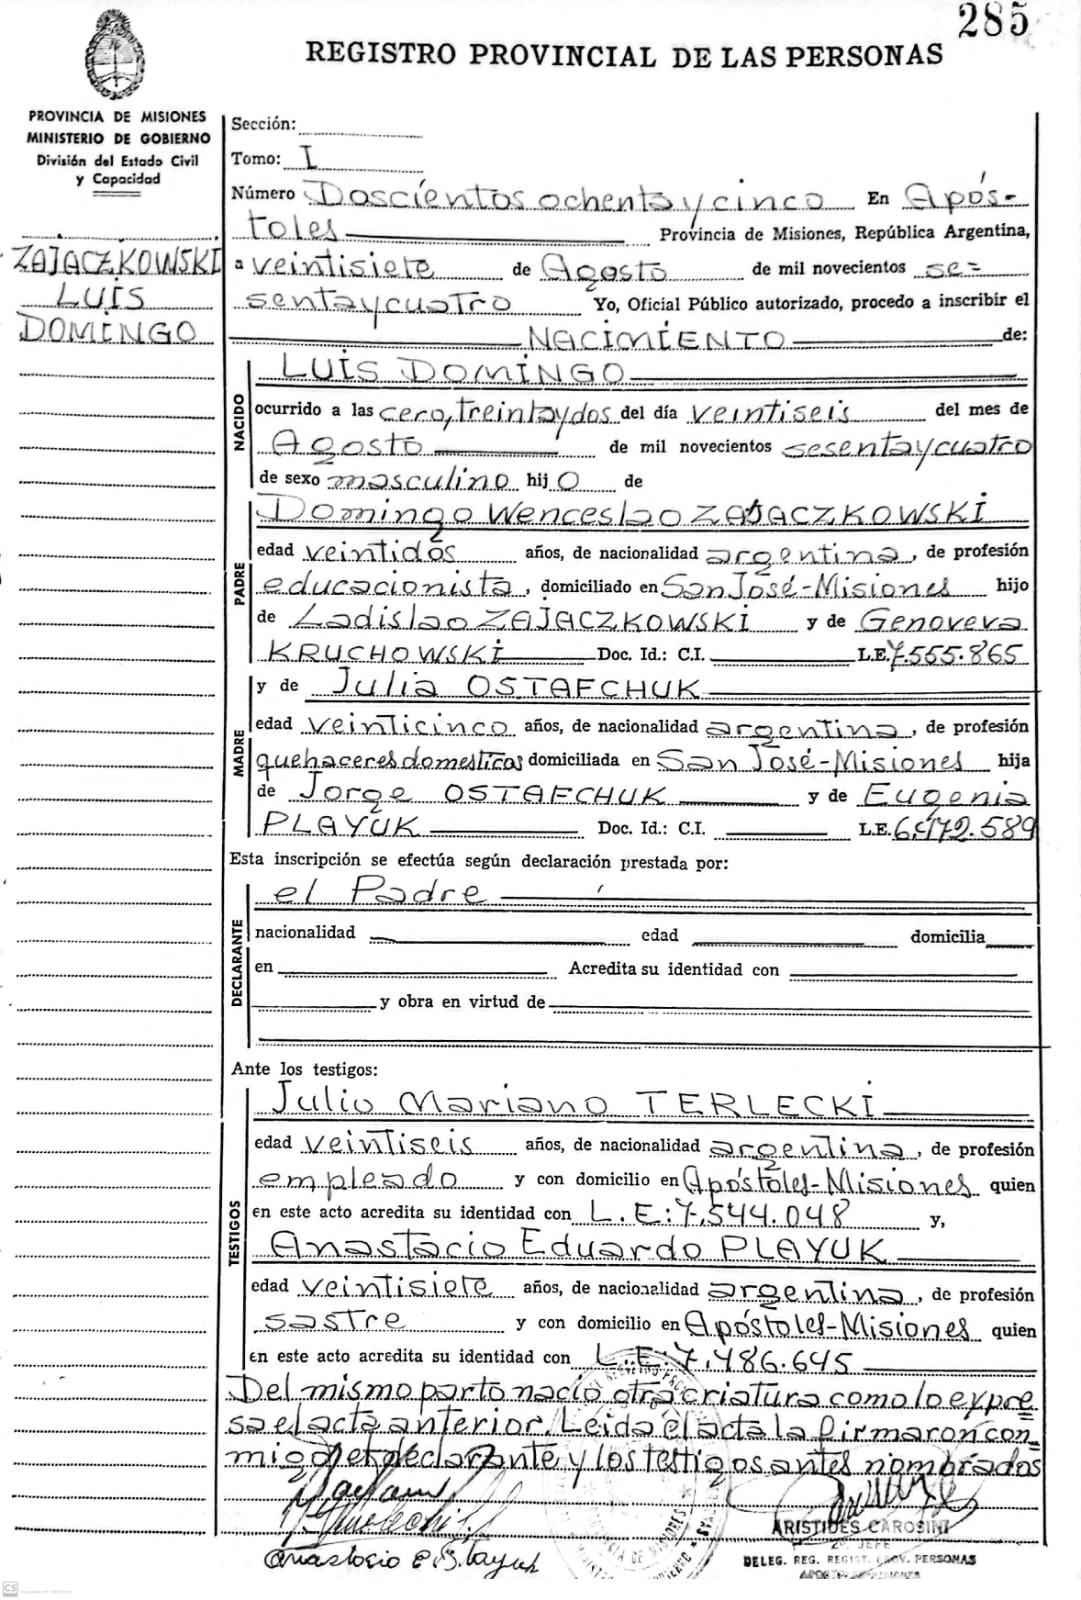 285
REGISTRO PROVINCIAL DE LAS PERSONAS
PROVINCIA DE MISIONES
MINISTERIO DE GOBIERNO
División del Estado Civil
y Capacidad
ZAJACZKOWSKI
LUIS
DOMINGO
Sección:
Tomo: I
Número Doscientos ochentaycinco En Após-
toles Provincia de Misiones, República Argentina,
a veintisiete de Agosto de mil novecientos se=
sentaycuatro Yo, Oficial Público autorizado, procedo a inscribir el
NACIMIENTO de:
NACIDO
LUIS DOMINGO
ocurrido a las cero, treintaydos del día veintiseis del mes de
Agosto de mil novecientos sesentaycuatro
de sexo masculino hijo de
PADRE
Domingo Wenceslao ZAJACZKOWSKI
edad veintidos años, de nacionalidad argentina, de profesión
educacionista, domiciliado en San José-Misiones hijo
de Ladislao ZAJACZKOWSKI y de Genoveva
KRUCHOWSKI Doc. Id.: C.I. L.E. 7.555.865
MADRE
y de Julia OSTAFCHUK
edad veinticinco años, de nacionalidad argentina, de profesión
quehaceres domesticos domiciliada en San José-Misiones hija
de Jorge OSTAFCHUK y de Eugenia
PLAYUK Doc. Id.: C.I. L.E. 6.472.589
Esta inscripción se efectúa según declaración prestada por:
DECLARANTE
el Padre
nacionalidad edad domicilia
en Acredita su identidad con
y obra en virtud de
Ante los testigos:
TESTIGOS
Julio Mariano TERLECKI
edad veintiseis años, de nacionalidad argentina, de profesión
empleado y con domicilio en Apóstoles-Misiones quien
en este acto acredita su identidad con L.E: 7.544.048 y,
Anastacio Eduardo PLAYUK
edad veintisiete años, de nacionalidad argentina, de profesión
sastre y con domicilio en Apóstoles-Misiones quien
en este acto acredita su identidad con L.E: 7.486.645
Del mismo parto nació otra criatura como lo expre
sa el acta anterior. Leida el acta la firmaron con_
migo el declarante y los testigos antes nombrados
ARISTIDES CAROSINI
2º JEFE
DELEG. REG. REGIST. PROV. PERSONAS
CS